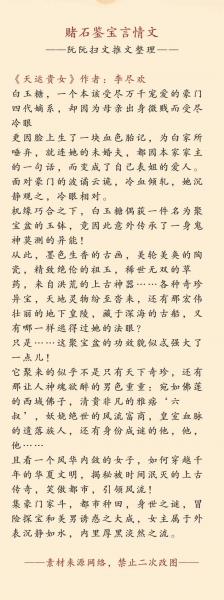 赌石鉴宝言情文
——阮阮扫文推文整理——
《天运贵女》作者：季尽欢
白玉糖，一个本该受尽万千宠爱的豪门
四代嫡系，却因为母亲出身微贱而受尽
冷眼
更因脸上生了一块血色胎记，为白家所
唾弃，就连她的未婚夫，都因本家家主
的一句话，而变成了自己表姐的爱人。
面对豪门的波谲云诡，冷血倾轧，她沉
静观之，冷眼相对。
机缘巧合之下，白玉糖偶获一件名为聚
宝盆的玉钵，竟因此意外传承了一身鬼
神莫测的异能！
从此，墨色生香的古画，美轮美奂的陶
瓷，精致绝伦的祖玉，稀世无双的草
药，来自洪荒的上古神器……各种奇珍
异宝，天地灵物纷至沓来，还有那宏伟
壮丽的地下皇陵，藏于深海的古船，又
有哪一样逃得过她的法眼？
只是……这聚宝盆的功效貌似忒强大了
一点儿！
它聚来的似乎不只有天下奇珍，还有
那让人神魂欲醉的男色重重：宛如佛莲
的西城佛子，清贵非凡的雅痞‘六
叔’，妖娆绝世的风流富商，皇室血脉
的遗落族人，还有身份成谜的他，他，
他……
且看一个风华内敛的女子，如何穿越千
年的华夏文明，揭秘被时间泯灭的上古
传奇，笑傲都市，引领风流！
集豪门家斗，都市种田，身世之谜，冒
险探宝和美男诱惑之大成，女主属于外
表沉静如水，内里厚黑淡然之流。
——素材来源网络，禁止二次改图——